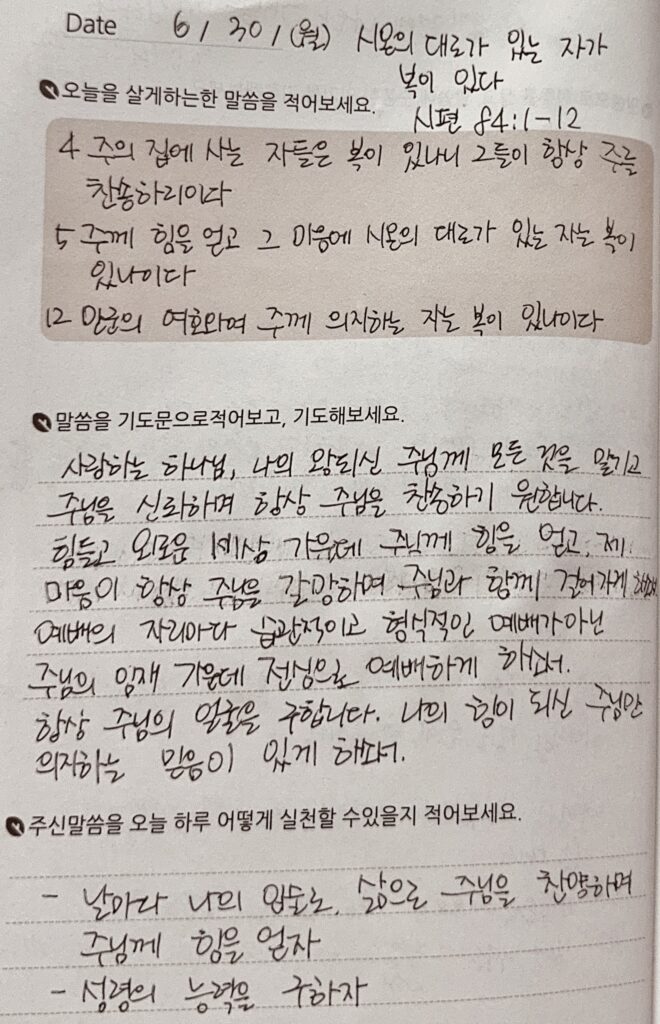 Date 6 / 30 / (월) 시온의 대로가 있는 자가
복이 있다
오늘을 살게하는한 말씀을 적어보세요.
시편 84:1-12
4 주의 집에 사는 자들은 복이 있나니 그들이 항상 주를
찬송하리이다
5 주께 힘을 얻고 그 마음에 시온의 대로가 있는 자는 복이
있나이다
12 만군의 여호와여 주께 의지하는 자는 복이 있나이다
말씀을 기도문으로적어보고, 기도해보세요.
사랑하는 하나님, 나의 왕되신 주님께 모든 것을 맡기고
주님을 신뢰하며 항상 주님을 찬송하기 원합니다.
힘들고 외로운 세상 가운데 주님께 힘을 얻고, 제
마음이 항상 주님을 갈망하며 주님과 함께 걸어가게 하소서
예배의 자리마다 습관적이고 형식적인 예배가아닌
주님의 임재 가운데 전심으로 예배하게 하소서.
항상 주님의 얼굴을 구합니다. 나의 힘이 되신 주님만
의지하는 믿음이 있게 하소서.
주신말씀을 오늘 하루 어떻게 실천할 수있을지 적어보세요.
- 날마다 나의 입술로, 삶으로 주님을 찬양하며
주님께 힘을 얻자
- 성령의 능력을 구하자